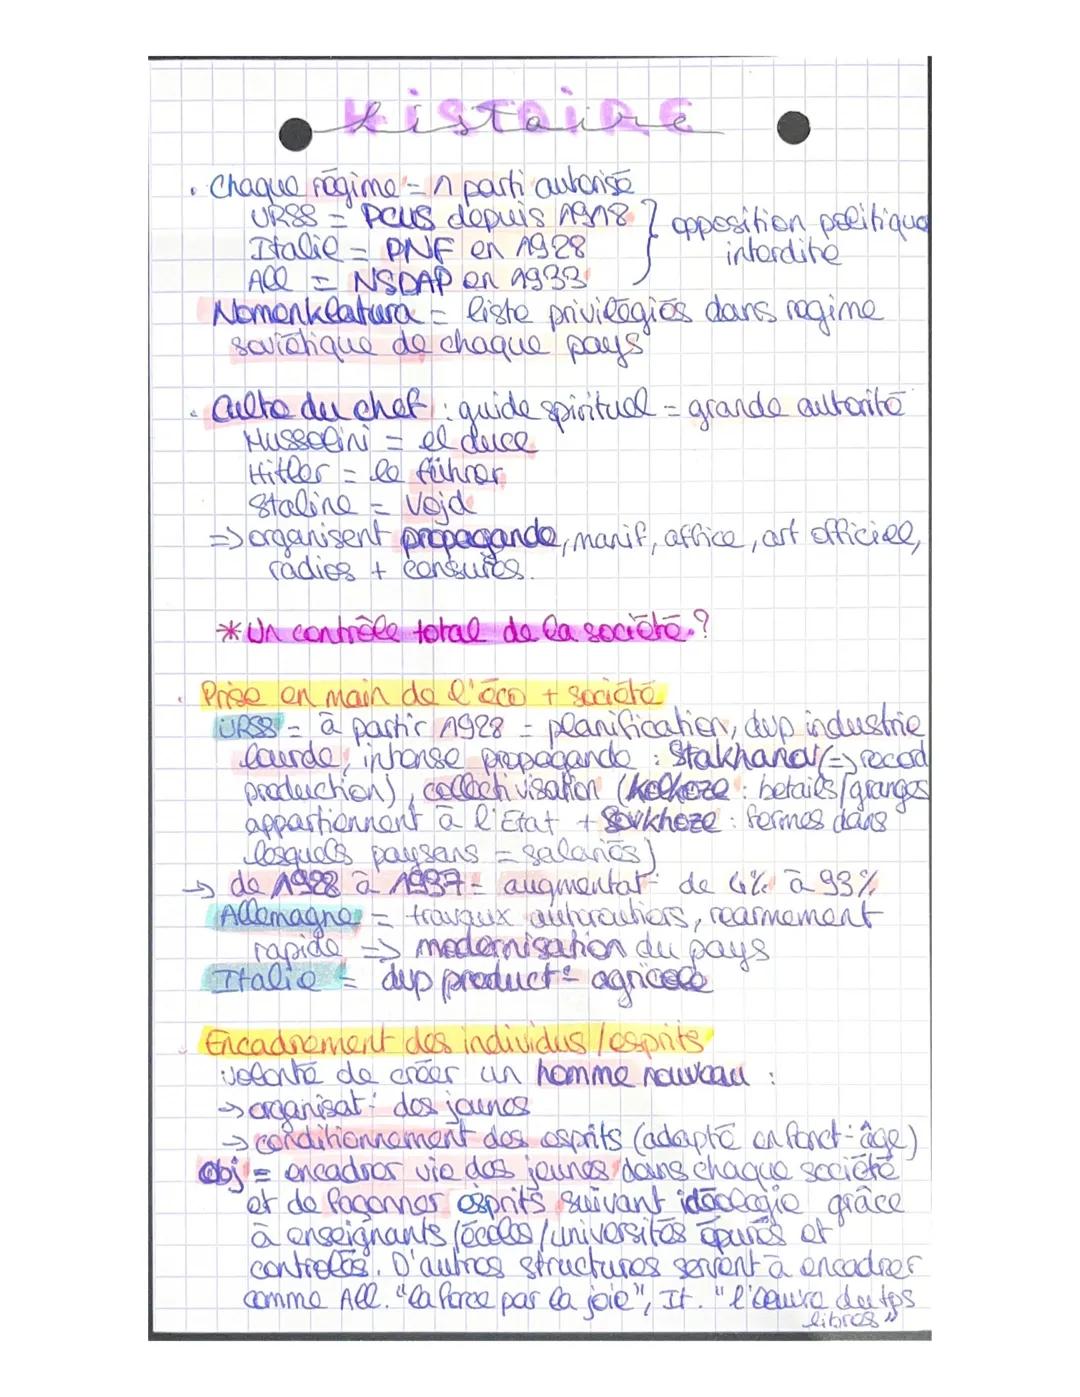 Histoire
. Chaque régime = 1 parti autorisé
URSS = PCUS depuis 1918
Italie = PNF en 1928
All = NSDAP en 1933
} opposition politique
interdite
Nomenklatura = liste privilégiés dans régime
soviétique de chaque pays
. Culte du chef : guide spirituel = grande autorité
Mussolini = el duce
Hitler = le führer
Staline = Vojd
=> organisent propagande, manif, affice, art officiel,
radios + censures.
* Un contrôle total de la société ?
. Prise en main de l'éco + société
URSS = à partir 1928 = planification, dvp industrie
lourde, intense propagande : Stakhanov (=> recod
production), collectivisation (kolkoze : betails/granges
appartiennent à l'Etat + Sovkhoze : fermes dans
lesquels paysans = salariés)
-> de 1928 à 1937 = augmentat° de 4% à 93%
Allemagne = travaux autoroutiers, réarmement
rapide => modernisation du pays
Italie = dvp product° agricole
. Encadrement des individus / esprits
volonté de créer un homme nouveau :
-> organisat° des jeunes
-> conditionnement des esprits (adapté en fonct° âge)
obj = encadrer vie des jeunes dans chaque société
et de façonner esprits suivant idéologie grâce
à enseignants /écoles /universités épurés et
controlés. D'autres structures servent à encadrer
comme All. "la force par la joie", It. "l'oeuvre du tps
libres"